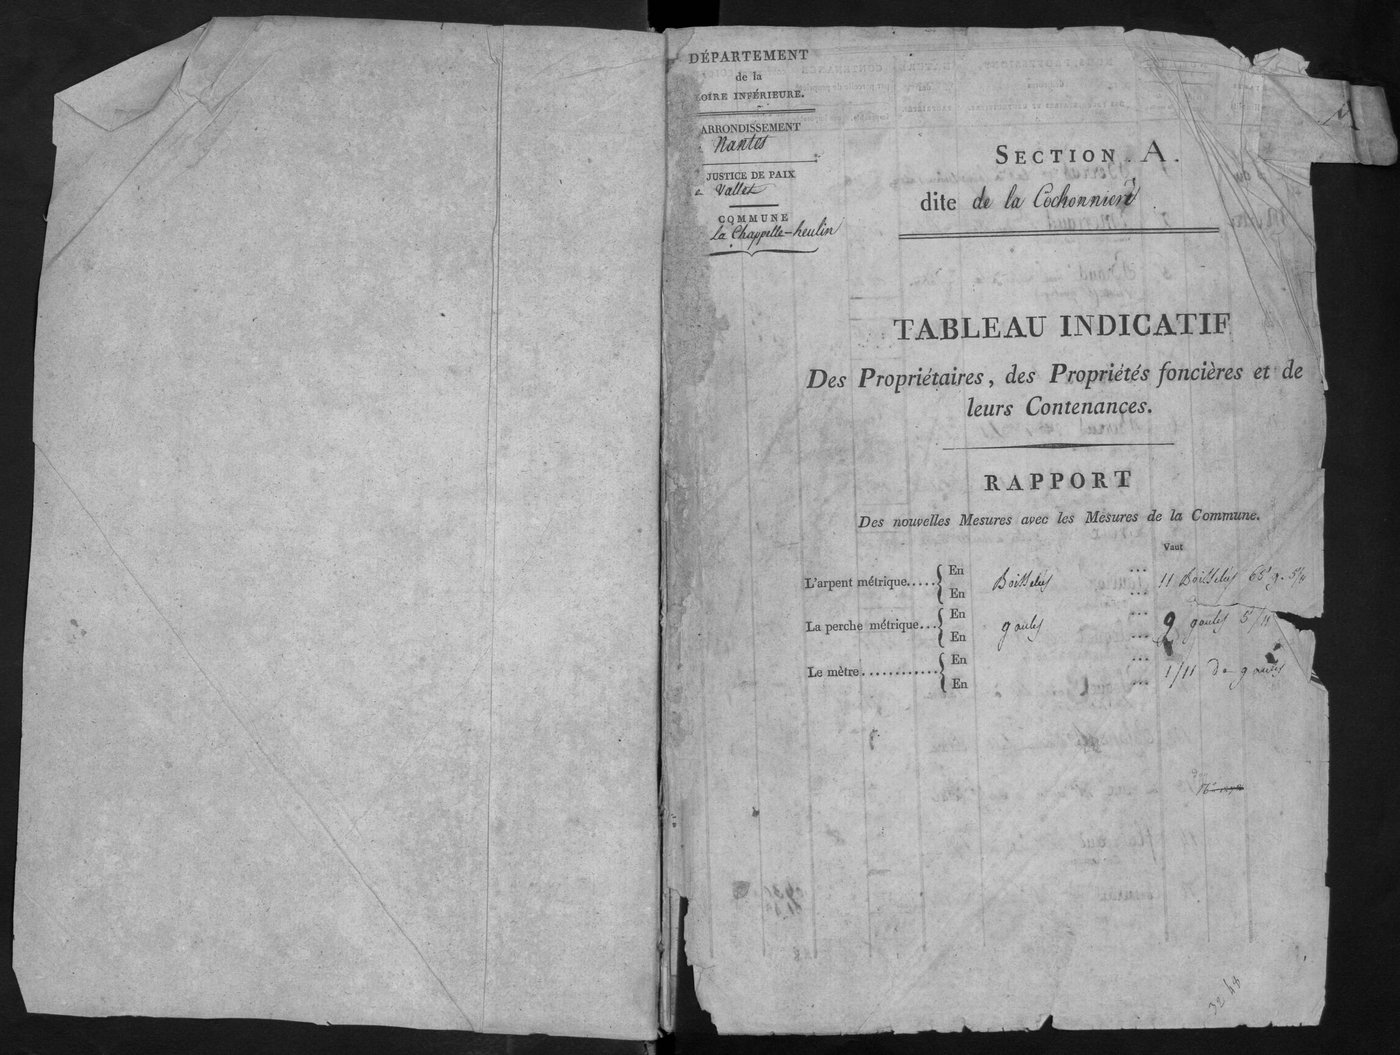 DÉPARTEMENT
de la
LOIRE INFÉRIEURE.
ARRONDISSEMENT
Nantes
JUSTICE DE PAIX
Vallet
COMMUNE
La Chappelle-heulin
A
SECTION. A.
dite de la Cochonnière
TABLEAU INDICATIF
Des Propriétaires, des Propriétés foncières et de
leurs Contenances.
RAPPORT
Des nouvelles Mesures avec les Mesures de la Commune.
Vaut
L'arpent métrique..... { En Boisselés ... 11 Boisselés 68 g. 5/11
En ...
La perche métrique... { En gaules ... 9 gaules 5/11
En ...
Le mètre............ { En ... 1/11 de gaules
En ...
32 48